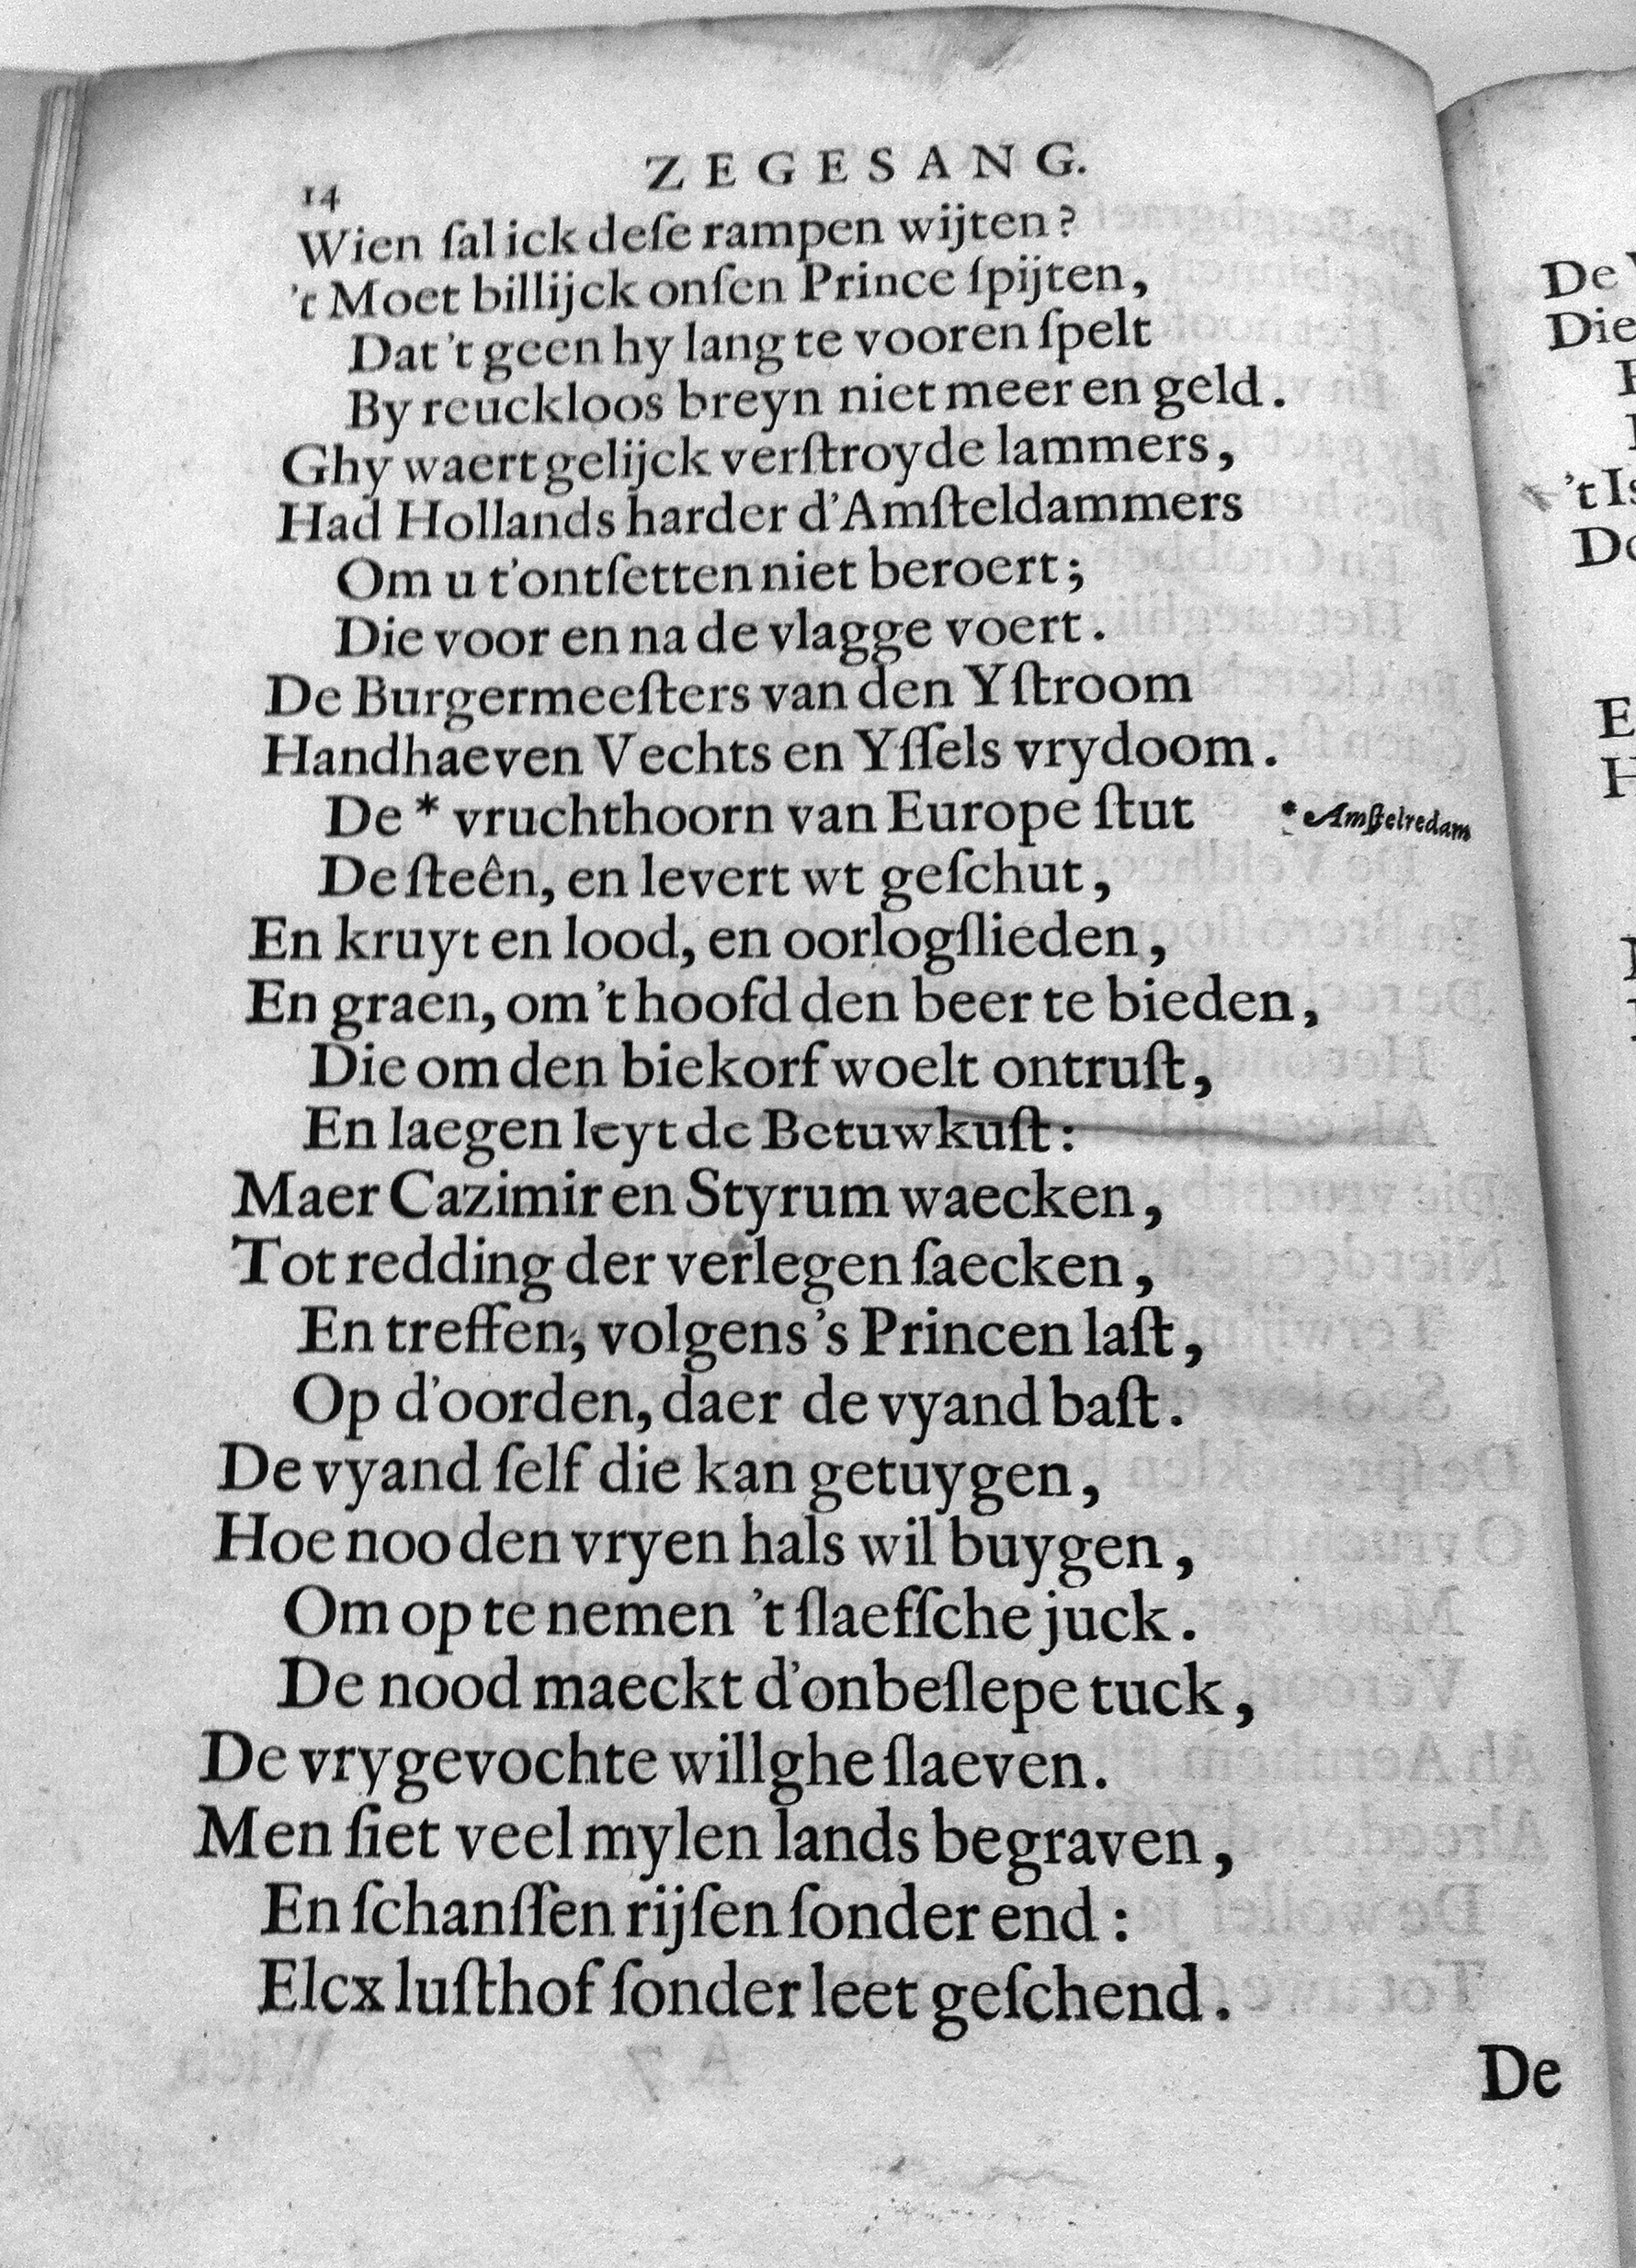 ZEGESANG.
14
Wien ſal ick deſe rampen wijten?
't Moet billijck onſen Prince ſpijten,
Dat 't geen hy lang te vooren ſpelt
By reuckloos breyn niet meer en geld.
Ghy waert gelijck verſtroyde lammers,
Had Hollands harder d'Amſteldammers
Om u t'ontſetten niet beroert;
Die voor en na de vlagge voert.
De Burgermeeſters van den Yſtroom
Handhaeven Vechts en Yſſels vrydoom.
De * vruchthoorn van Europe ſtut
* Amſtelredam
De ſteên, en levert wt geſchut,
En kruyt en lood, en oorlogſlieden,
En graen, om 't hoofd den beer te bieden,
Die om den biekorf woelt ontruſt,
En laegen leyt de Betuwkuſt:
Maer Cazimir en Styrum waecken,
Tot redding der verlegen ſaecken,
En treffen, volgens 's Princen laſt,
Op d'oorden, daer de vyand baſt.
De vyand ſelf die kan getuygen,
Hoe noo den vryen hals wil buygen,
Om op te nemen 't ſlaefſche juck.
De nood maeckt d'onbeſlepe tuck,
De vrygevochte willghe ſlaeven.
Men ſiet veel mylen lands begraven,
En ſchanſſen rijſen ſonder end:
Elcx luſthof ſonder leet geſchend.
De
De
Die
't Is